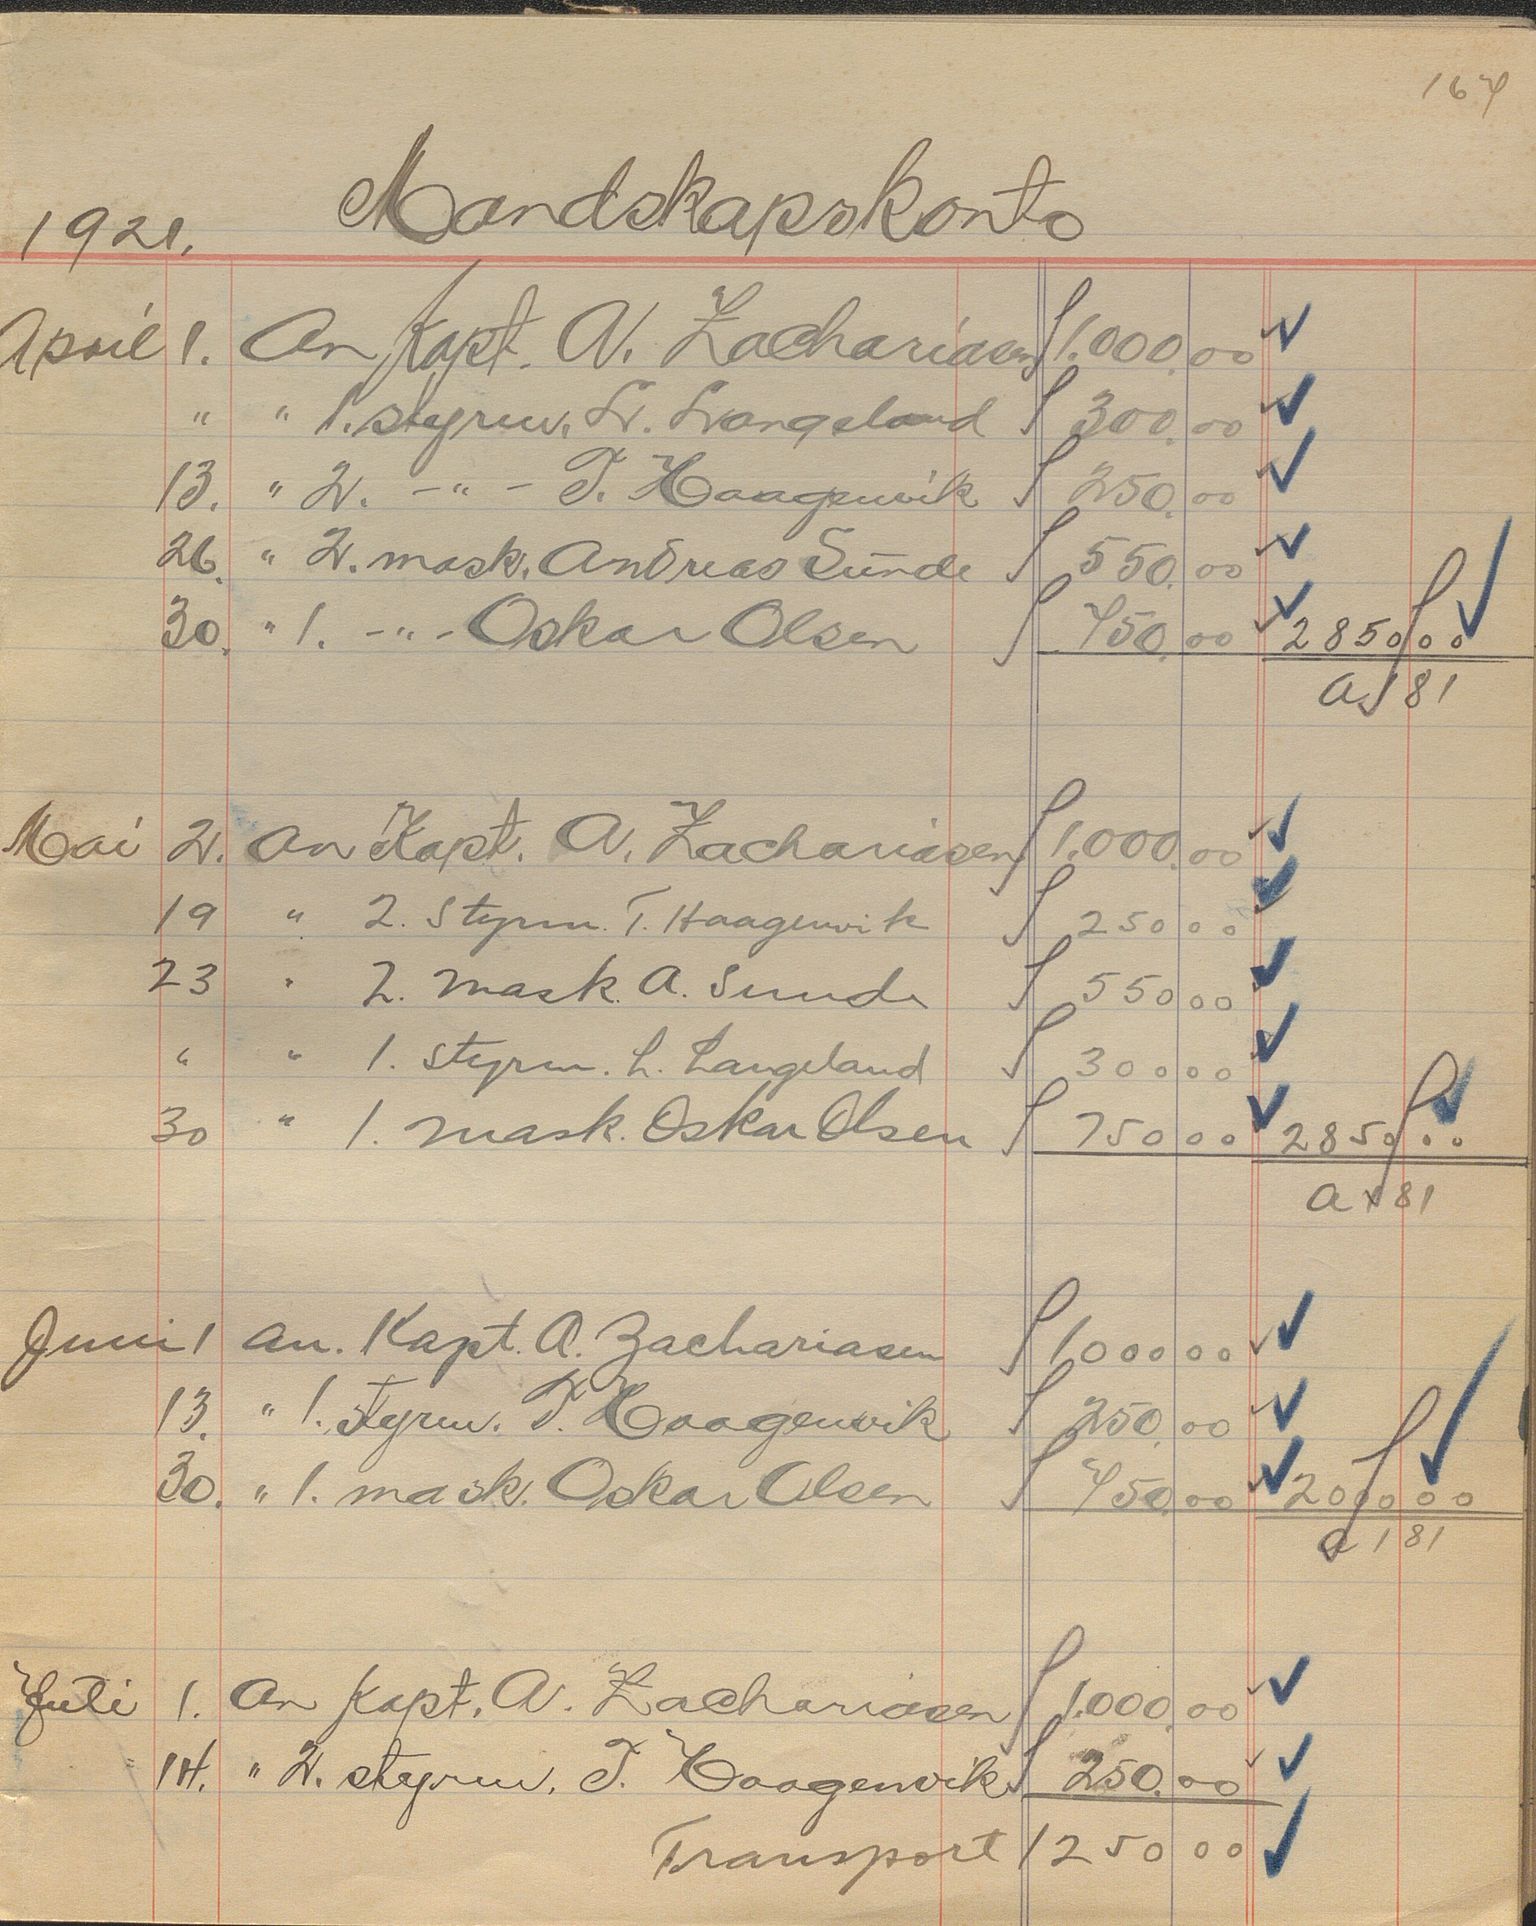 167
1921. Mandskapskonto
April 1. An Kapt. A. Zachariasen 1.000.00
" " 1. styrm. L. Langeland 300.00
13. " 2. -"- T. Haagenvik 250.00
26. " 2. mask. Andreas Sunde 550.00
30. " 1. -"- Oskar Olsen 750.00 2850 00
a 181
Mai 2. An Kapt. A. Zachariasen 1.000.00
19 " 2. Styrm. T. Haagenvik 250 00
23 " 2. Mask. A. Sunde 550 00
" " 1. Styrm. L. Langeland 300 00
30 " 1. Mask. Oskar Olsen 750 00 2850 00
a 181
Juni 1 an. Kapt. A. Zachariasen 1000 00
13. " 1. styrm. T. Haagenvik 250.00
30. " 1. mask. Oskar Olsen 750.00 2000 00
a 181
Juli 1. An Kapt. A. Zachariasen 1.000.00
" 14. " 2. styrm. T. Haagenvik 250.00
Transport 1250 00